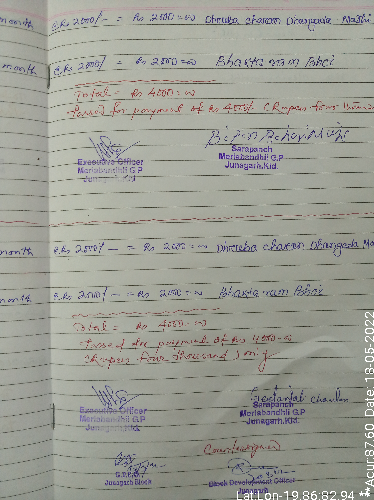 month @ Rs 2000/- = Rs 2000=00 Dhruba charan Dhangada Majhi
month @ Rs 2000/- = Rs 2000=00 Bhakta ram Bhoi
Total = Rs 4000=00
Passed for payment of Rs 4000/- (Rupees four thousand
Executive Officer
Meriabandhli G.P
Junagarh
Sarapanch
Meriabandhli G.P
Junagarh, Kld.
month @ Rs 2000/- = Rs 2000=00 Dhruba charan Dhangada Ma
month @ Rs 2000/- - Rs 2000=00 Bhakta ram Bhoi
Total = Rs 4000=00
Passed for payment of Rs 4000=00
(Rupees four thousand) only
Executive Officer
Meriabandhli G.P
Junagarh
Sarapanch
Meriabandhli G.P
Junagarh, Kld.
Countersigned
G.P.E.O
Junagarh Block
Block Development Officer
Junagarh
Latlon-19.86:82.94 ** Acur:87.60 Date 13-05-2022